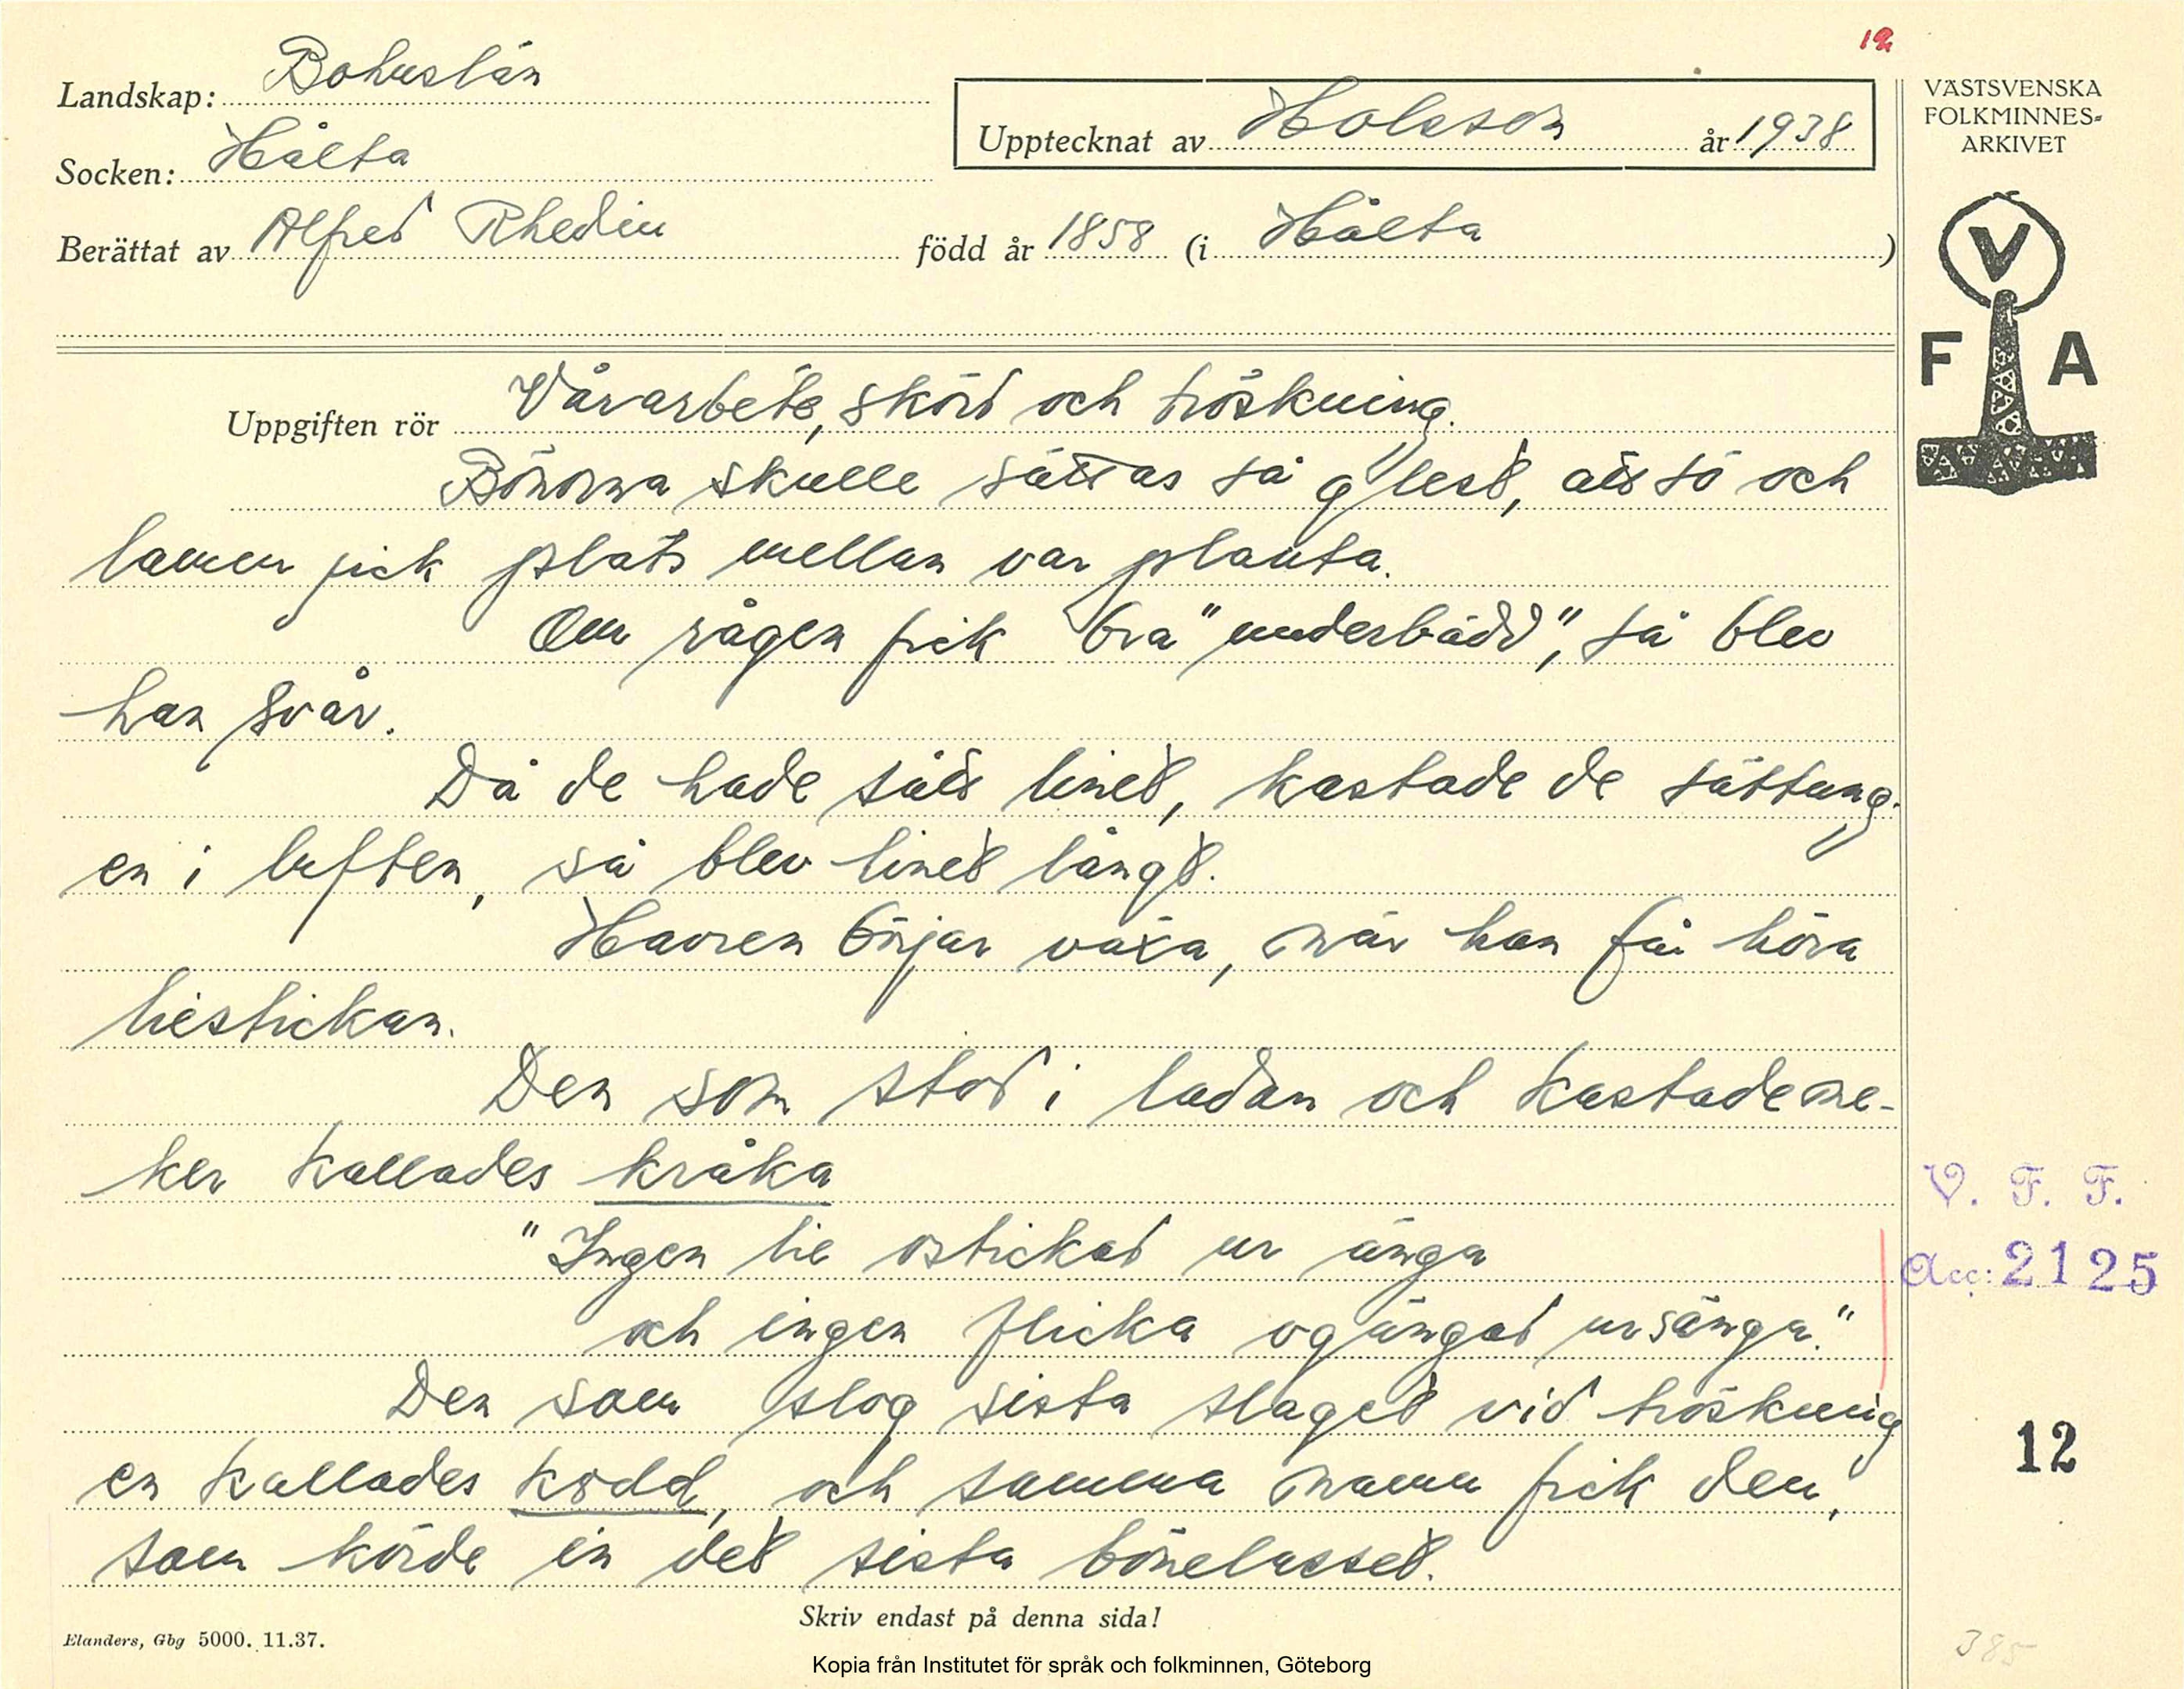 12
Landskap: Bohuslän
Socken: Hålta
Upptecknat av Holsson år 1938
Berättat av Alfred Rhedin född år 1858 (i Hålta )
VÄSTSVENSKA
FOLKMINNES-
ARKIVET
V
F A
Uppgiften rör Vårarbete, skörd och tröskning.
Bönorna skulle sättas så glest, att sö och
lamm fick plats mellan var planta.
Om rågen fick bra "underbädd", så blev
han svår.
Då de hade sått linet, kastade de sättung-
en i luften, så blev linet långt.
Havren börjar växa, när han får höra
liestickan.
Den som stod i ladan och kastade ne-
ker kallades kråka
"Ingen lie ostickad ur änga
och ingen flicka ogängad ur sänga."
Den som slog sista slaget vid tröskning
en kallades kodd, och samma namn fick den,
som körde in det sista bönelasset.
V. F. F.
Acc: 2125
12
Skriv endast på denna sida!
Elanders, Gbg 5000. 11.37.
385
Kopia från Institutet för språk och folkminnen, Göteborg